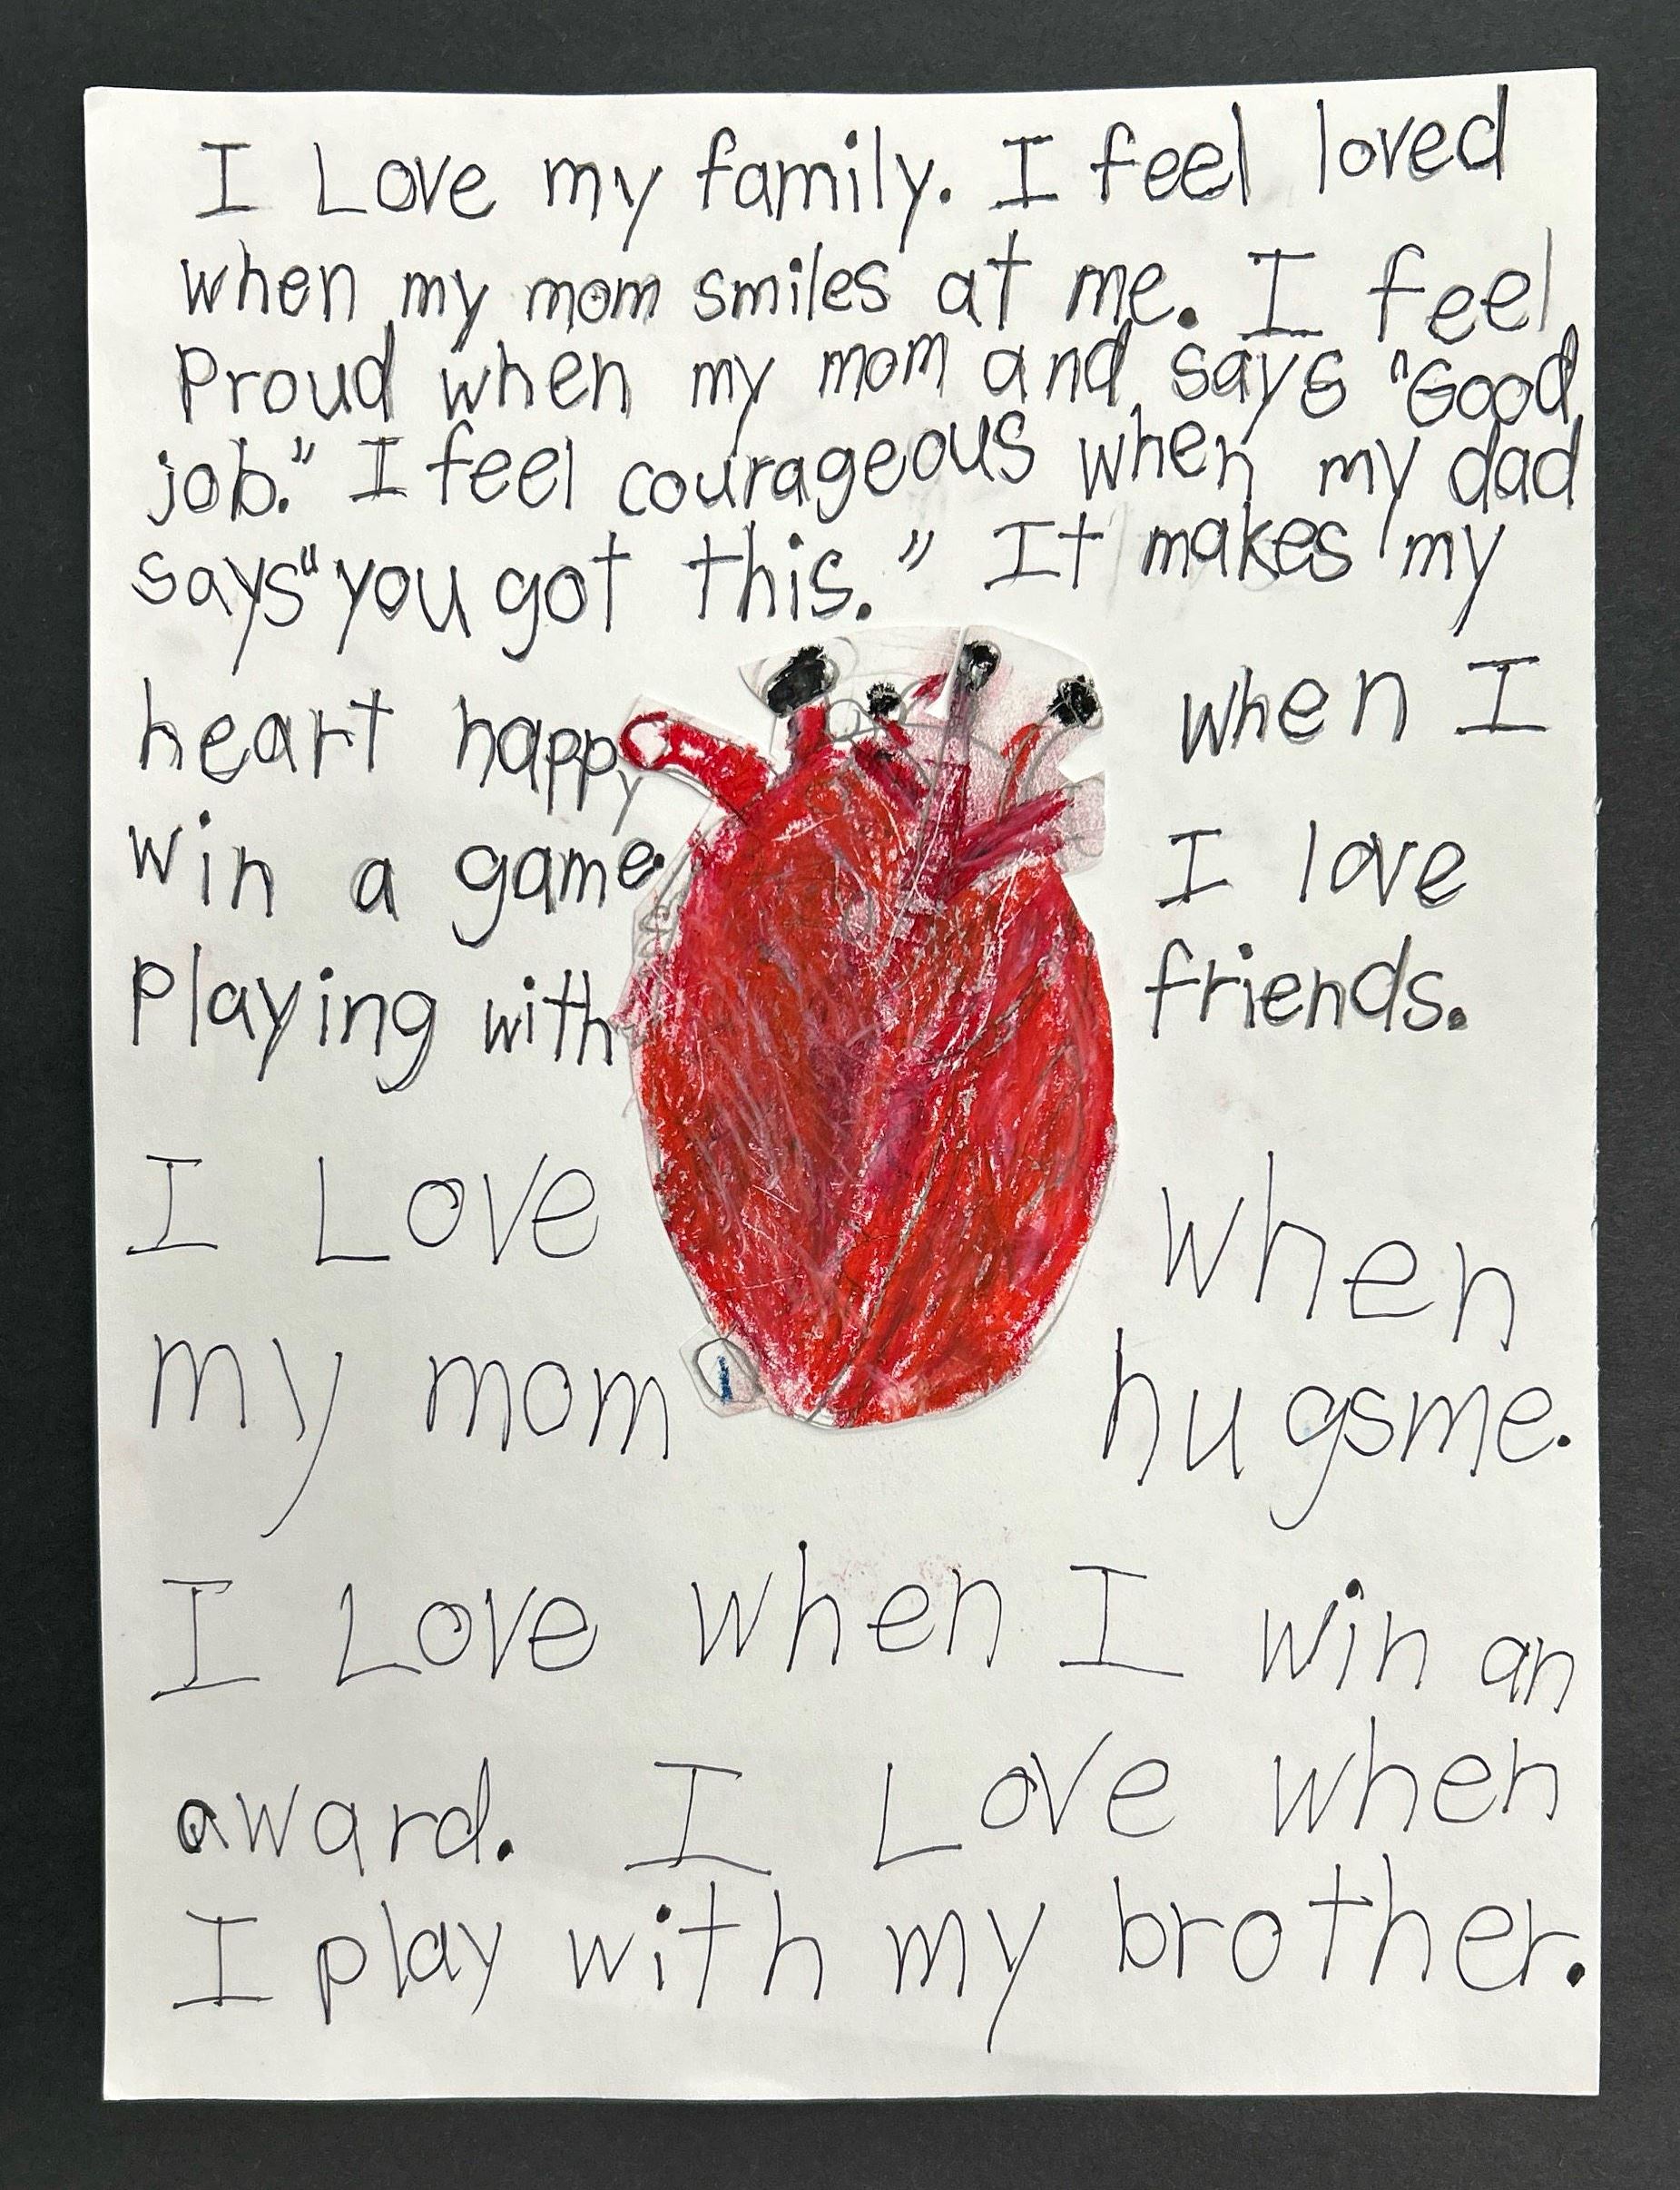 I Love my family. I feel loved
when my mom smiles at me. I feel
Proud when my mom and says "Good
job." I feel courageous when my dad
says "you got this." It makes my
heart happy when I
win a game. I love
Playing with friends.
I Love when
my mom hugsme.
I Love when I win an
award. I Love when
I play with my brother.